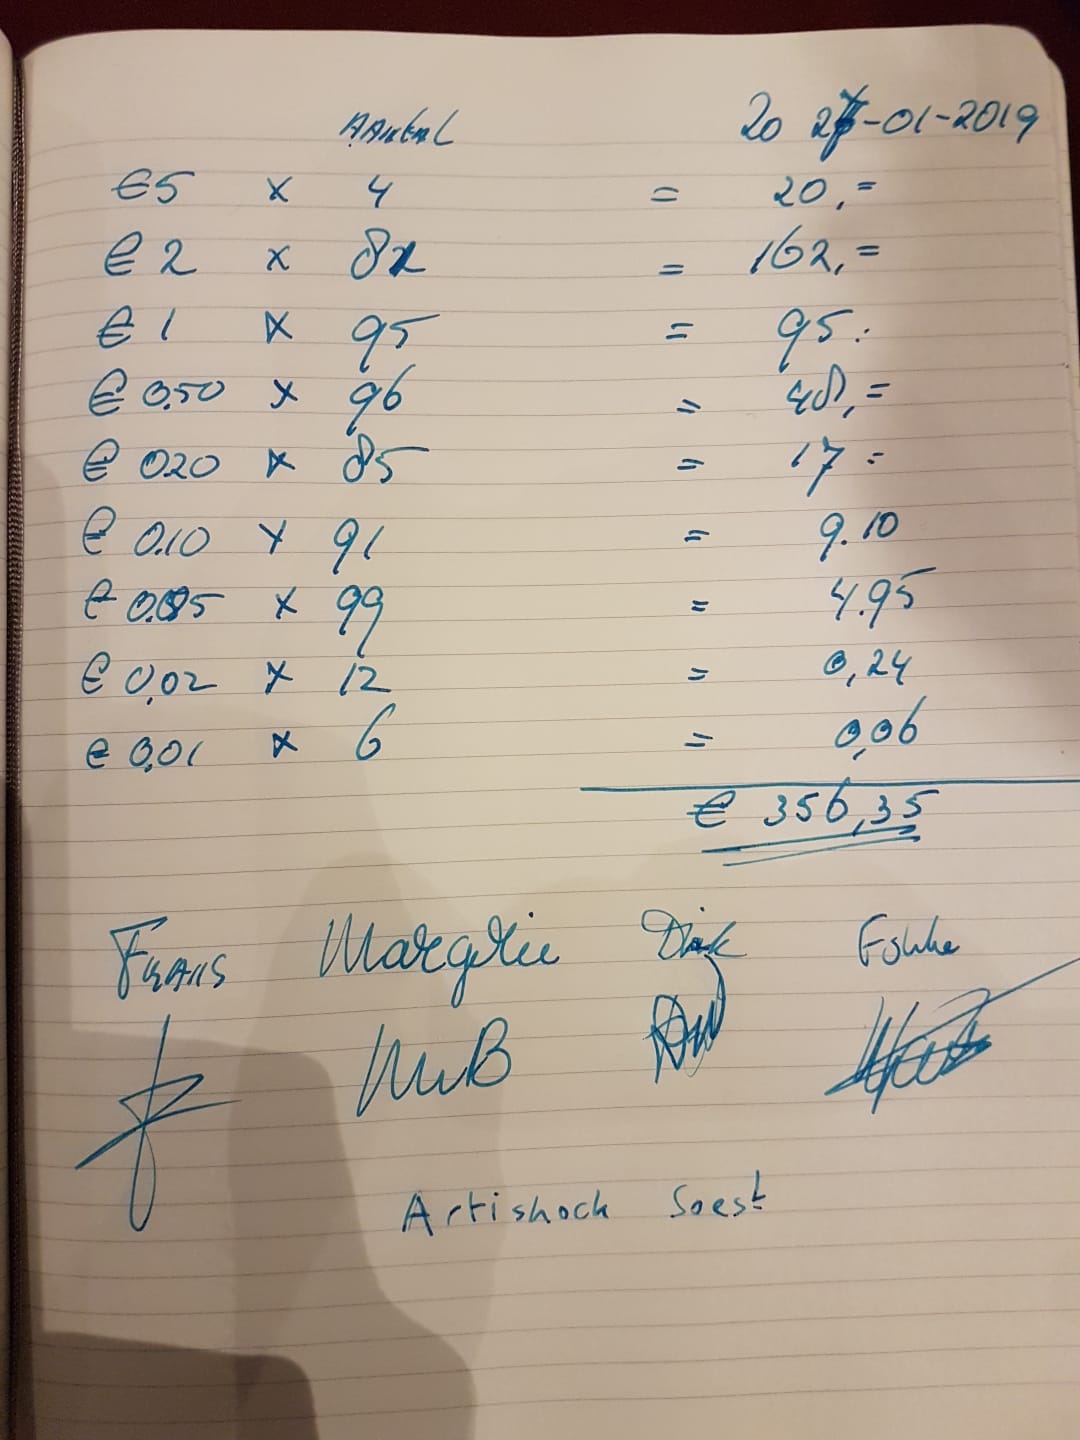 AANTAL 20 27-01-2019
€5 x 4 = 20,=
€ 2 x 81 = 162,=
€ 1 x 95 = 95.:
€ 0,50 x 96 = 48,=
€ 020 x 85 = 17 =
€ 0.10 x 91 = 9.10
€ 0.05 x 99 = 4.95
€ 0,02 x 12 = 0,24
€ 0,01 x 6 = 0,06
€ 356,35
FRANS Margrie Dirk
MvB
Artishock Soest